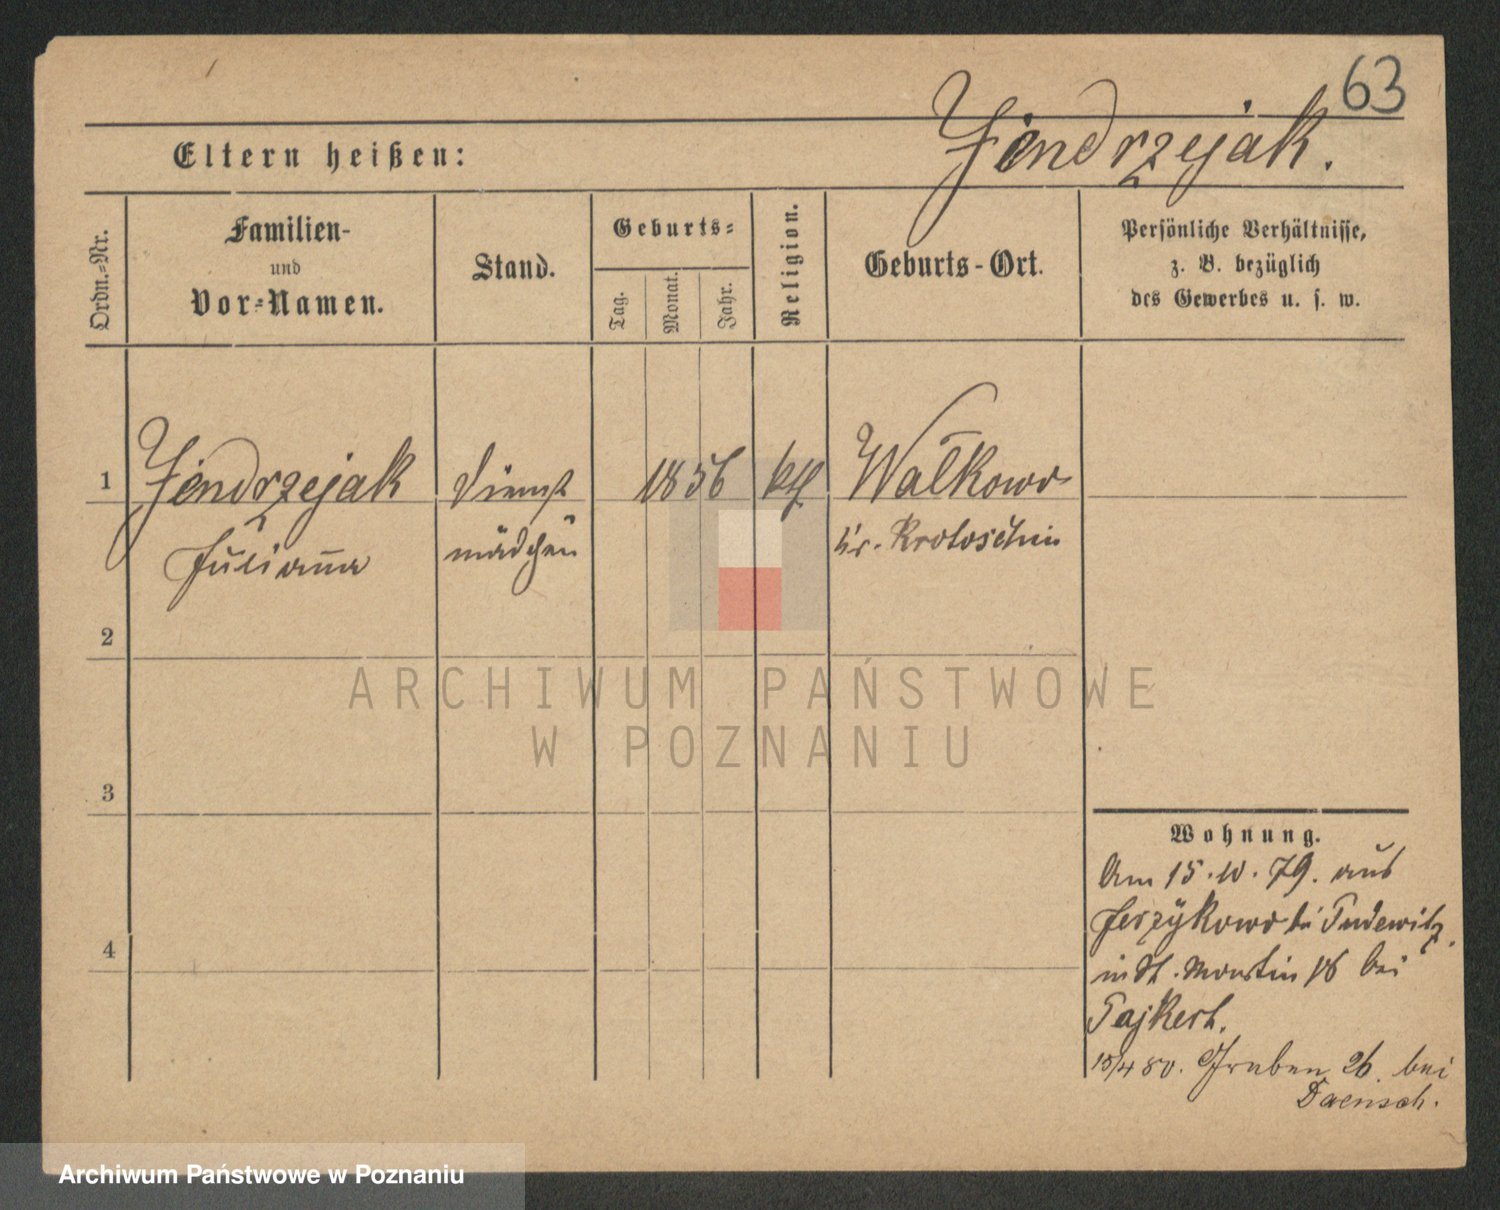 63
Jendrzejak.
Eltern heißen:
Ordn.-Nr.
Familien-
und
Vor-Namen.
Stand.
Geburts-
Tag.
Monat.
Jahr.
Religion.
Geburts-Ort.
Persönliche Verhältnisse,
z. B. bezüglich
des Gewerbes u. s. w.
1 Jendrzejak Dienst 1856 kth Wałkowo
Julianna mädchen Kr. Krotoschin
2
ARCHIWUM PAŃSTWOWE
W POZNANIU
3
4
Wohnung.
Am 15.10.79. aus
Jerzykowo bei Pudewitz
in St. Martin 18 bei
Pajkert.
15/4 80. Graben 26. bei
Daensch.
Archiwum Państwowe w Poznaniu